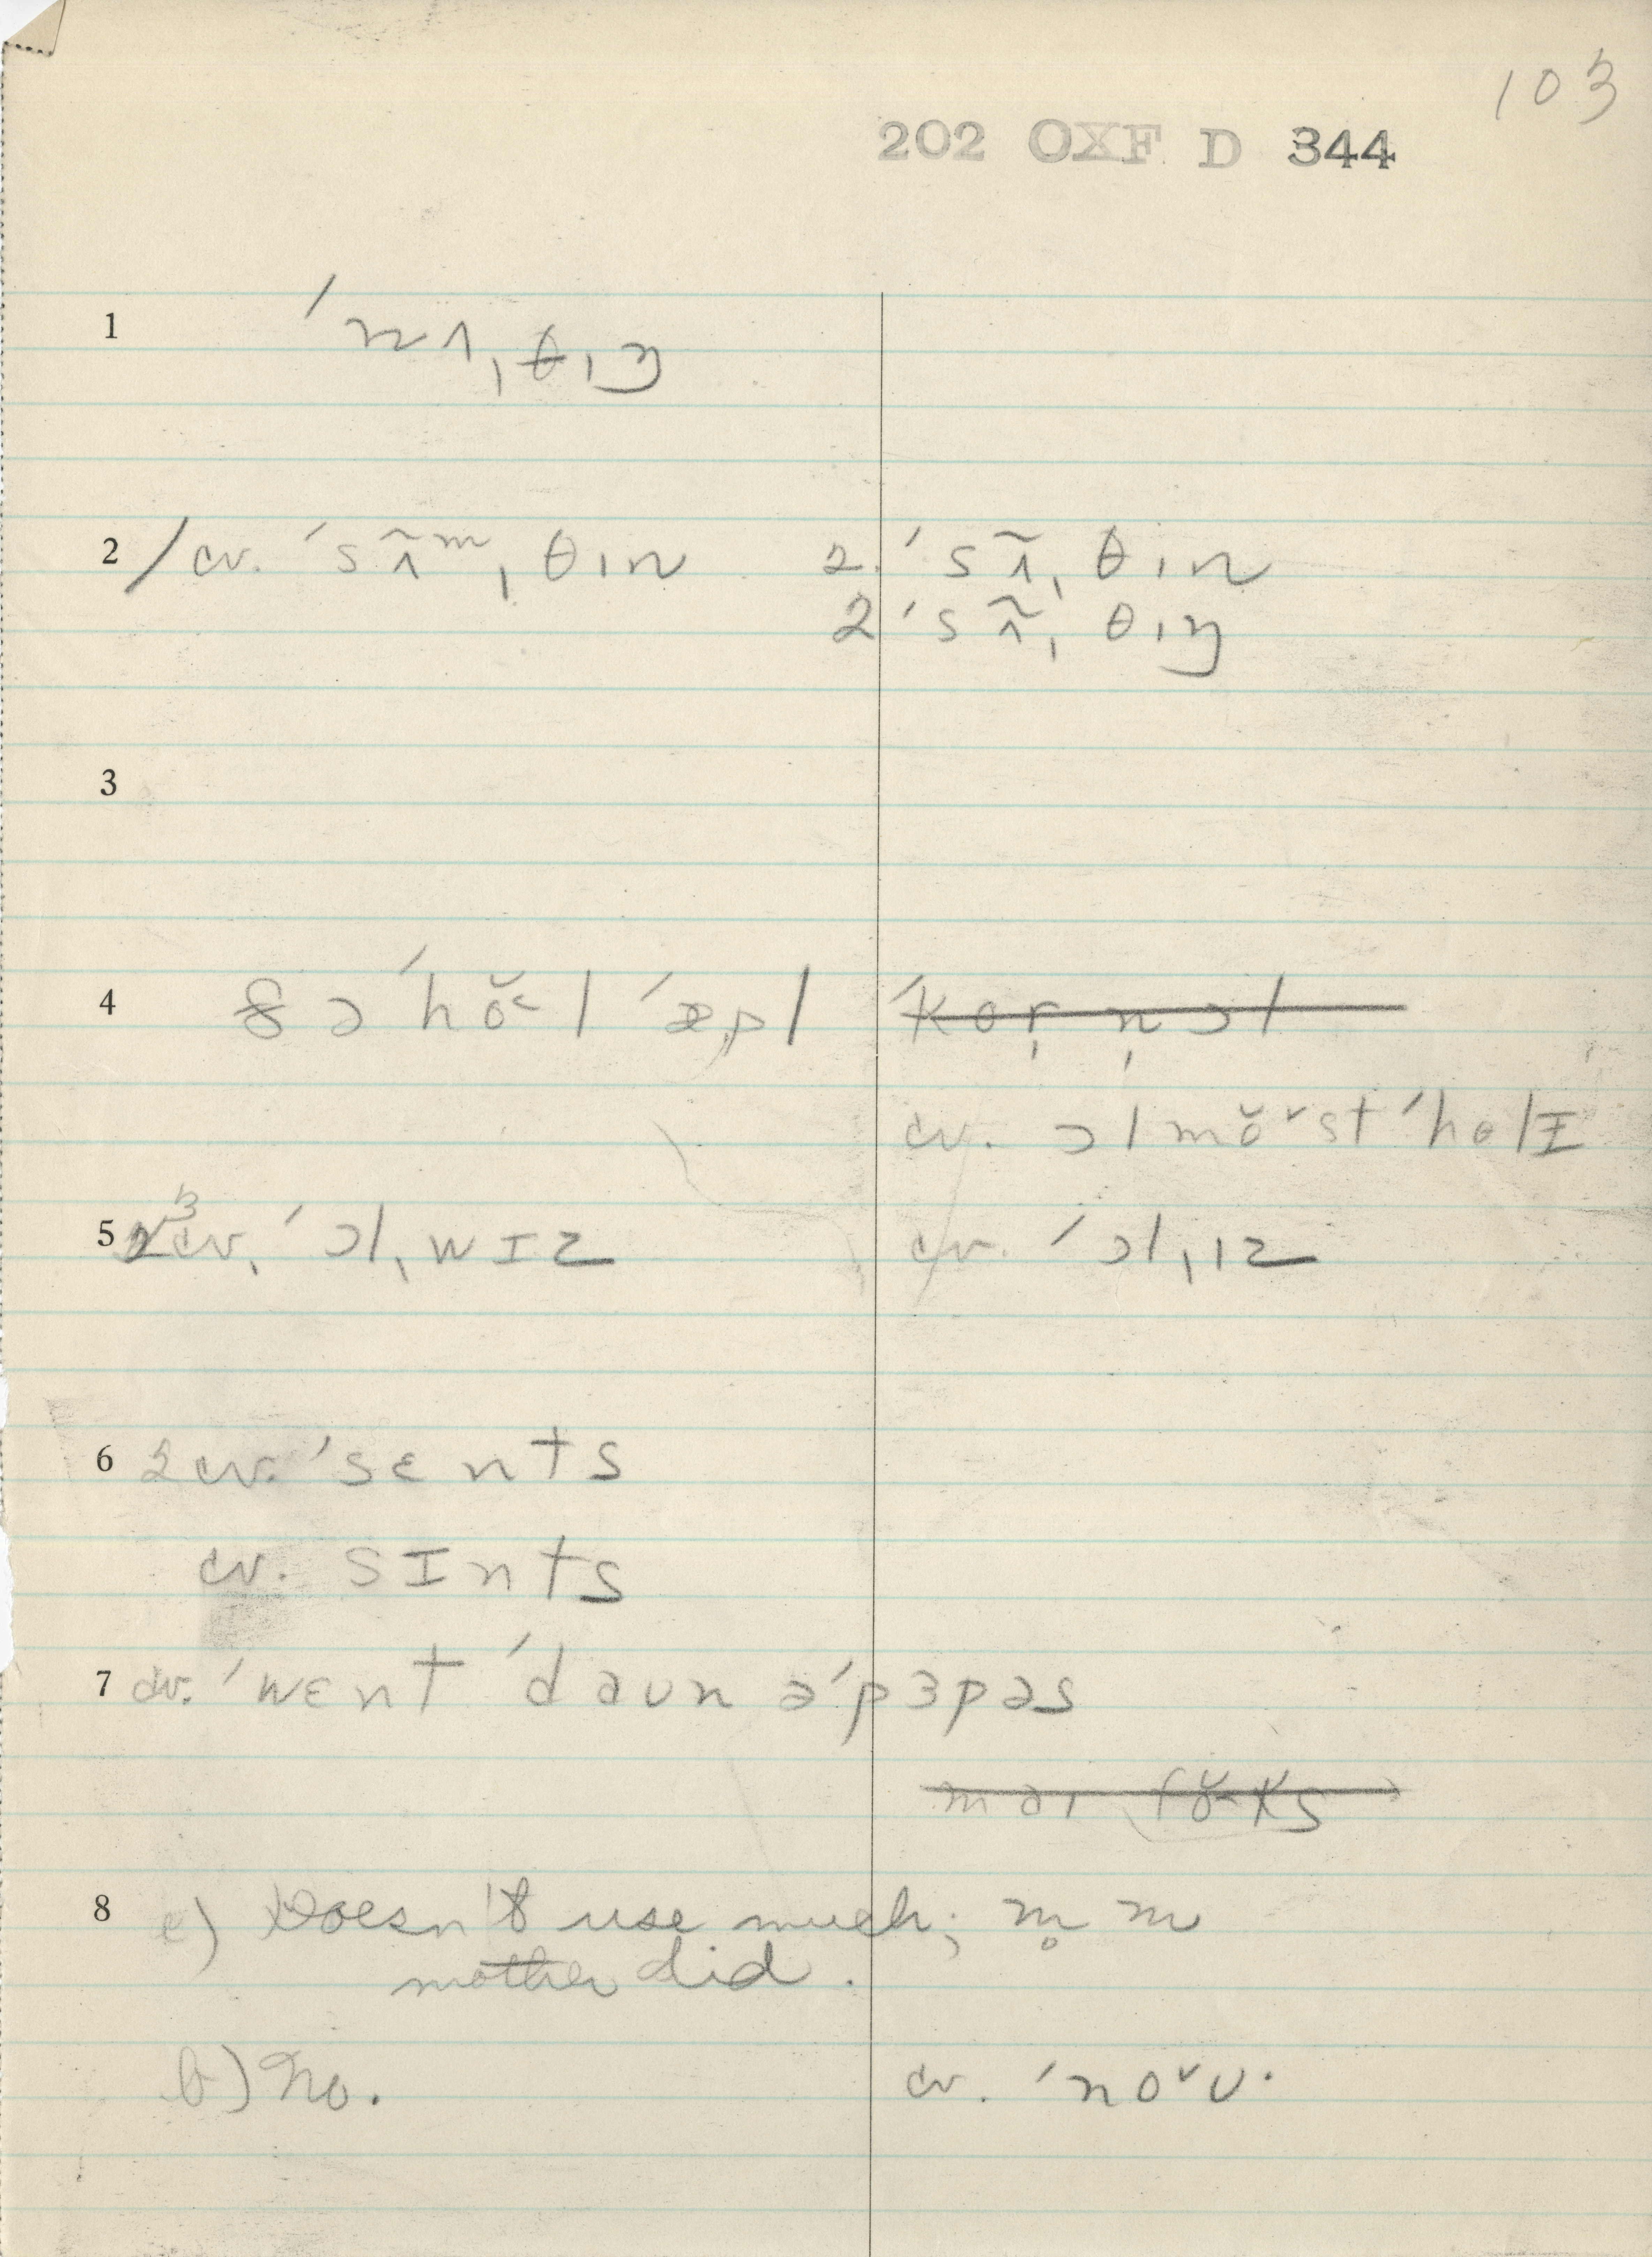 103
202 OXF D 344
1 ˈnʌˌθɪŋ
2 / cv. ˈsʌ̃ᵐˌθɪn 2. ˈsʌ̃ˌθɪn
2 ˈsʌ̃ˌθɪŋ
3
4 ðə ˈhŏ˂l ˈæpl̩ ˈkɵr̩n̩əl
cv. ɔlmŏ˅st ˈhɵlɪ
5 3 cv. ˈɔlˌwɪz cv. ˈɔlˌɪz
6 2 cv. ˈsɛnts
cv. sɪnts
7 cv. ˈwɛnt ˈdaʊn əˈpɜpəs
maɪ fŏ˂ks
8 a) Doesn't use much; m̥m
mother did.
b) No. cv. ˈno˅ʊ.